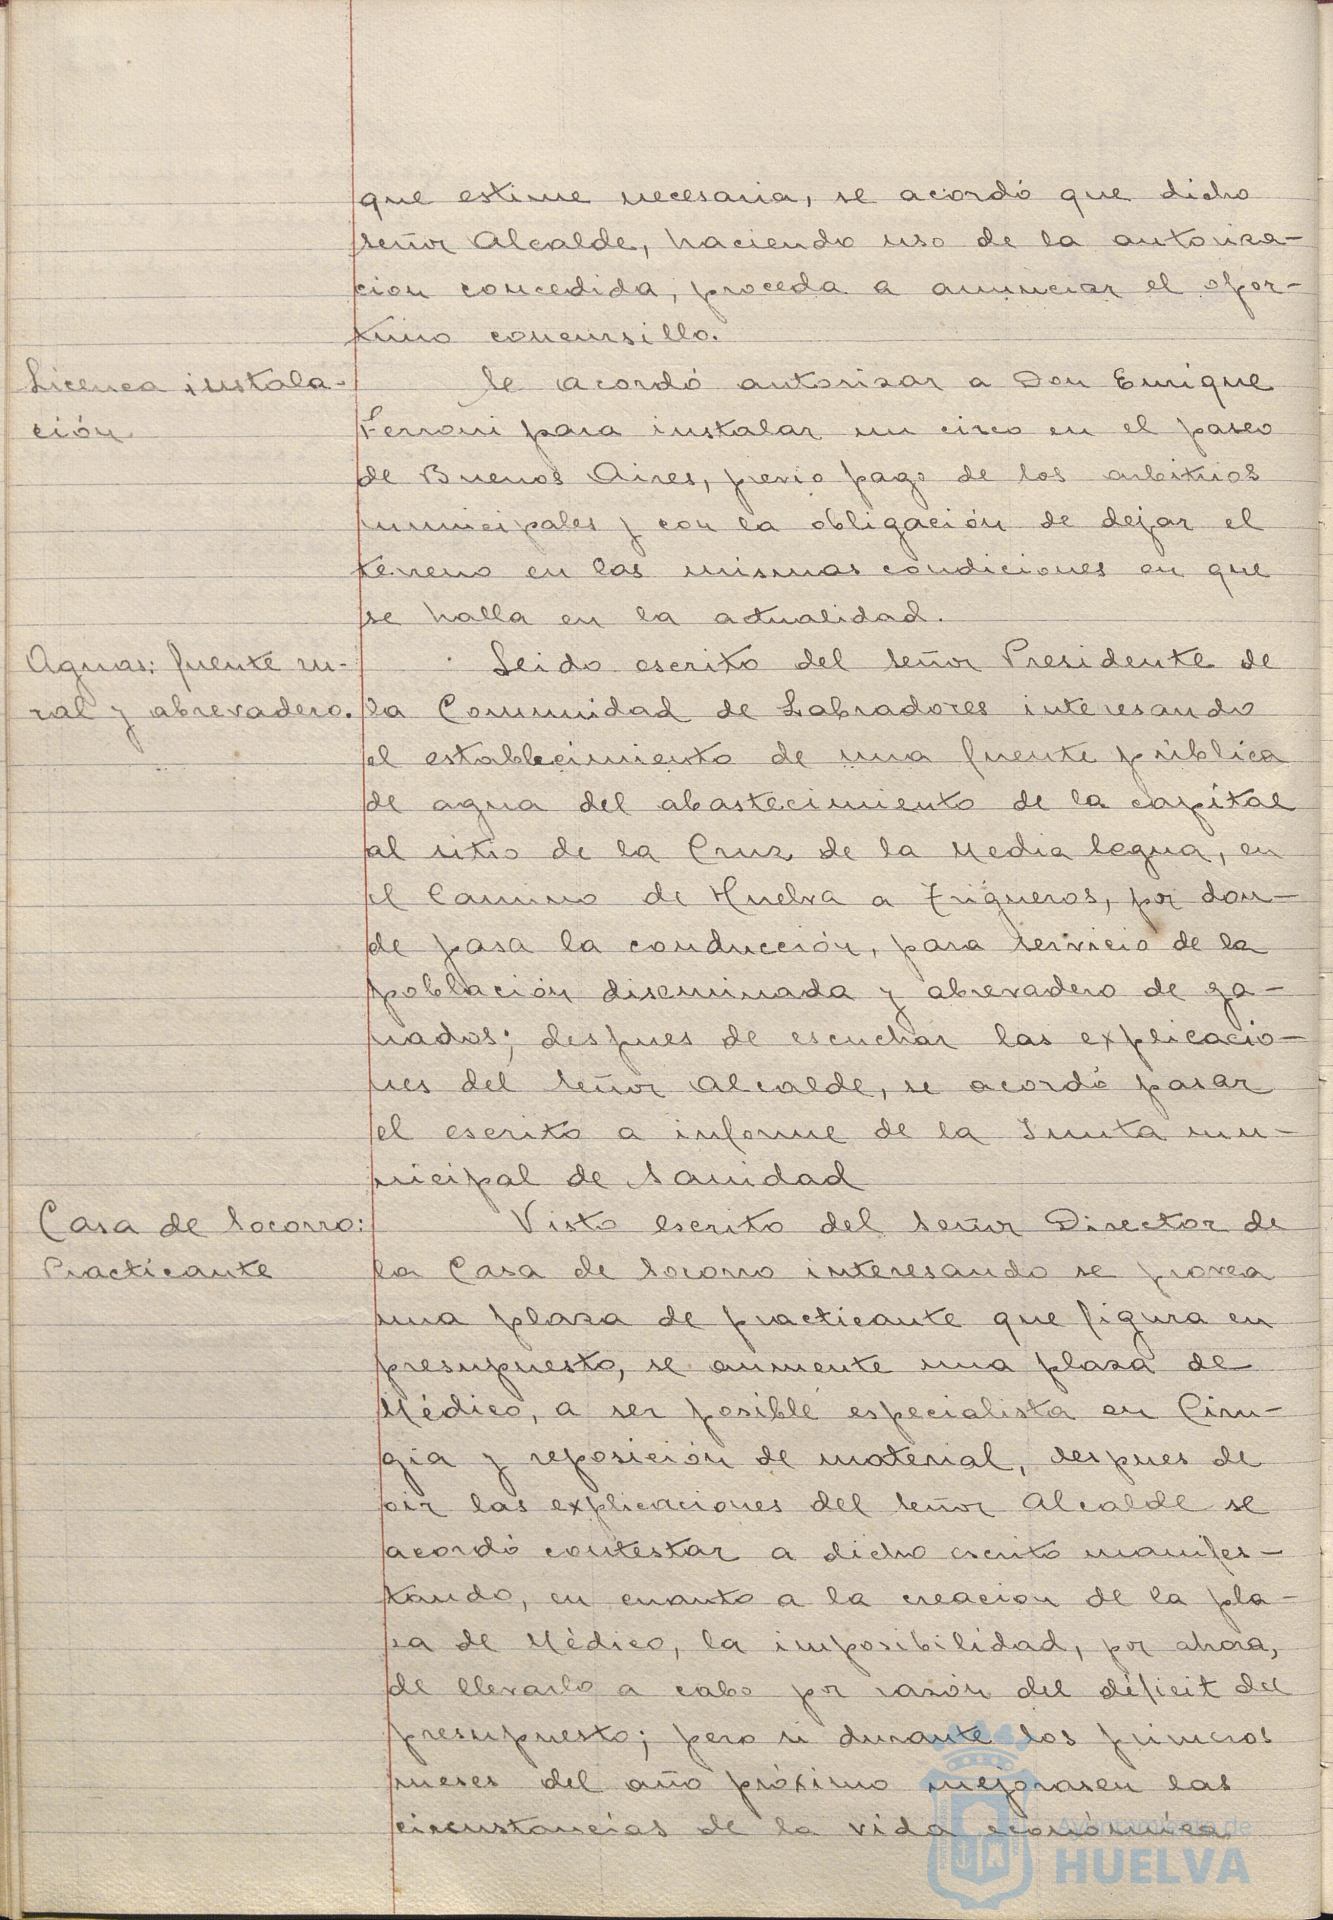 que estime necesaria, se acordó que dicho
señor Alcalde, haciendo uso de la autoriza-
cion concedida, proceda a anunciar el opor-
tuno concursillo.
Licencia instala-
ción
Se acordó autorizar a Don Enrique
Ferroni para instalar un circo en el paseo
de Buenos Aires, previo pago de los arbitrios
municipales y con la obligación de dejar el
terreno en las mismas condiciones en que
se halla en la actualidad.
Aguas: fuente ru-
ral y abrevadero.
Leido escrito del señor Presidente de
la Comunidad de Labradores interesando
el establecimiento de una fuente pública
de agua del abastecimiento de la capital
al sitio de la Cruz de la Media legua, en
el Camino de Huelva a Trigueros, por don-
de pasa la conducción, para servicio de la
población diseminada y abrevadero de ga-
nados; despues de escuchar las explicacio-
nes del señor Alcalde, se acordó pasar
el escrito a informe de la Junta mu-
nicipal de Sanidad
Casa de Socorro:
Practicante
Visto escrito del señor Director de
la Casa de Socorro interesando se provea
una plaza de practicante que figura en
presupuesto, se aumente una plaza de
Médico, a ser posible especialista en Ciru-
gia y reposición de material, despues de
oir las explicaciones del señor Alcalde se
acordó contestar a dicho escrito manifes-
tando, en cuanto a la creacion de la pla-
za de Médico, la imposibilidad, por ahora,
de llevarlo a cabo por razón del déficit del
presupuesto; pero si durante los primeros
meses del año próximo mejorasen las
circunstancias de la vida económica
Ayuntamiento de
HUELVA